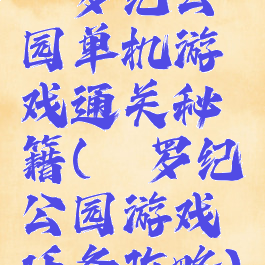 罗纪公
园单机游
戏通关秘
籍(罗纪
公园游戏
任务攻略)